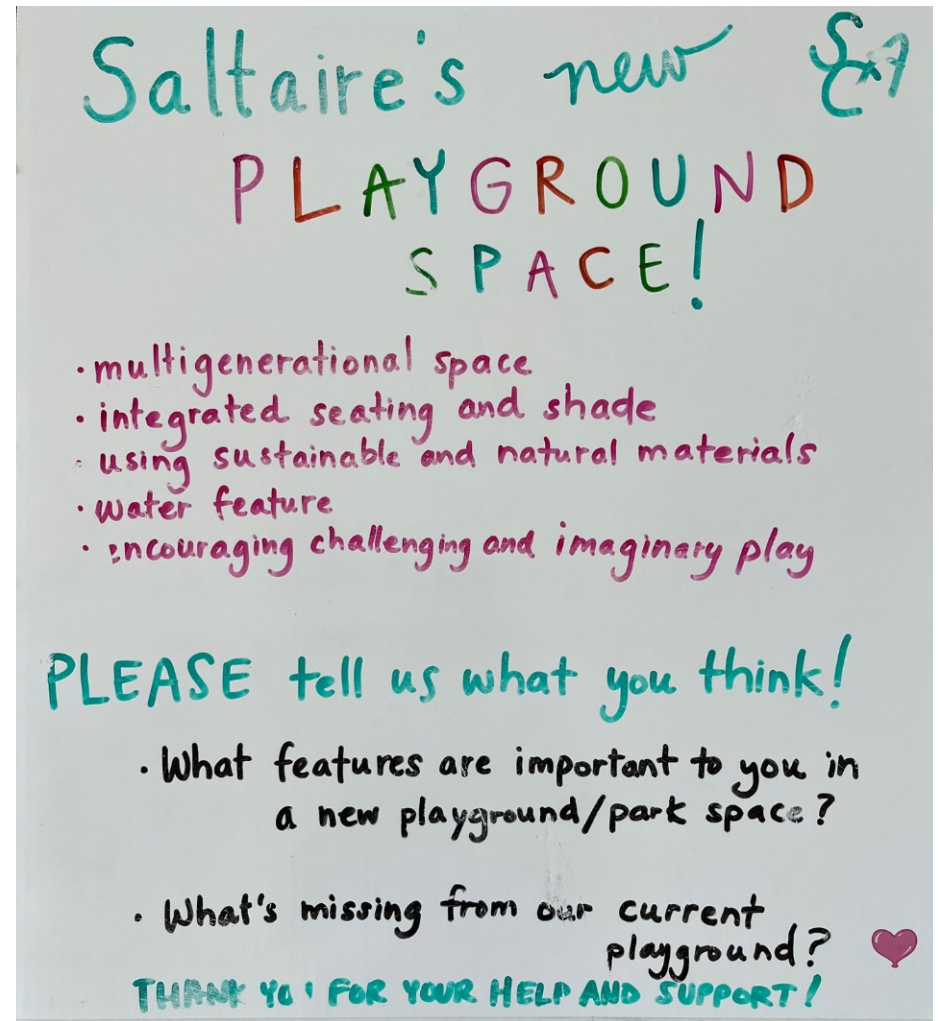 Saltaire's new SCA
PLAYGROUND
SPACE!
· multigenerational space
· integrated seating and shade
· using sustainable and natural materials
· water feature
· encouraging challenging and imaginary play
PLEASE tell us what you think!
· What features are important to you in
a new playground/park space?
· What's missing from our current
playground?
THANK YOU FOR YOUR HELP AND SUPPORT!